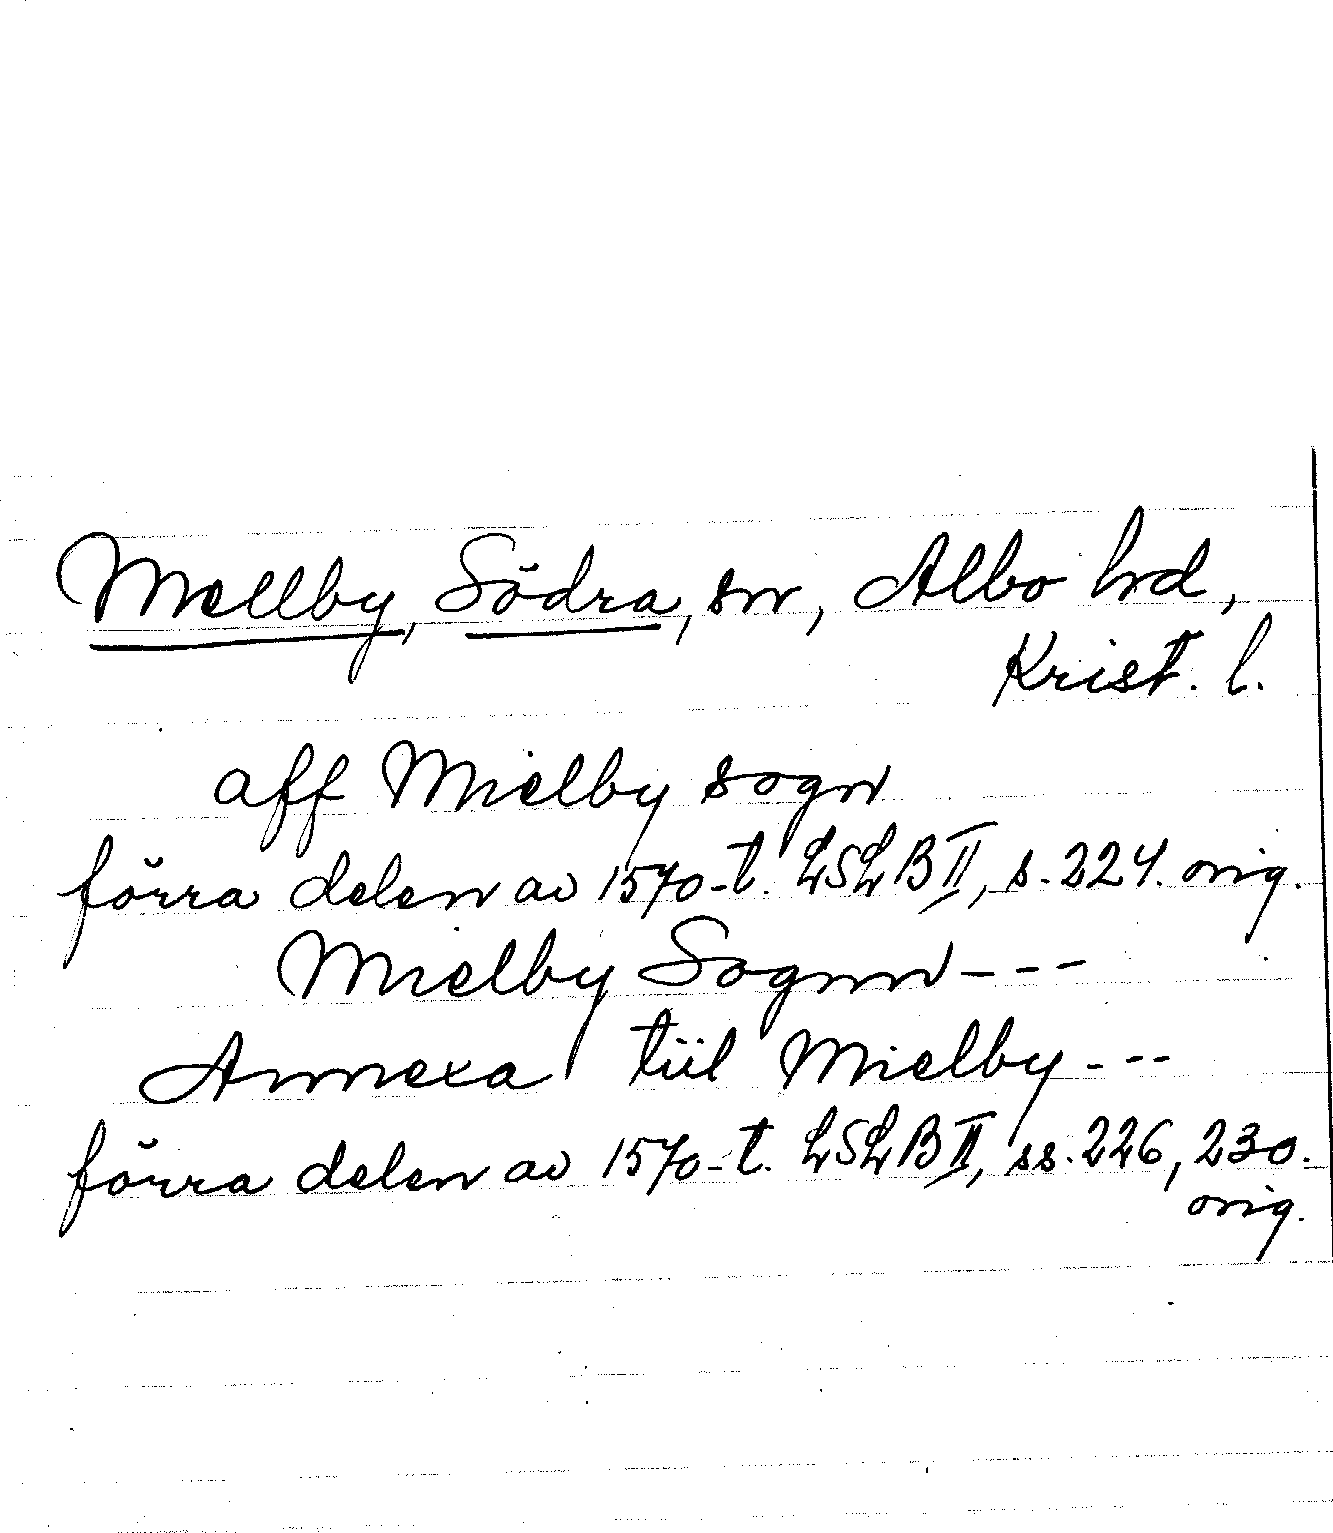 Mellby, Södra, sn, Albo hd,
Krist. l.
aff Mielby sogn
förra delen av 1570-t. LSLB II, s. 224. orig.
Mielby Sognn ---
Annexa tiil Mielby ---
förra delen av 1570-t. LSLB II, ss. 226, 230.
orig.